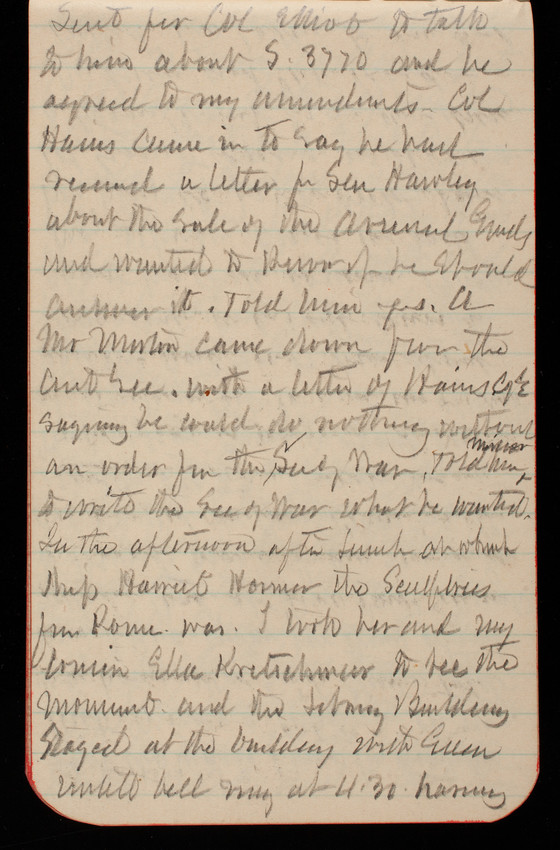 Sent for Col Elliot to talk
to him about S. 3770 and he
agreed to my amendments. Col
Hains came in to say he had
received a letter fr Sen Hawley
about the sale of the Arsenal Grnds
and wanted to know if he should
answer it. Told him yes. A
Mr Morton came down from the
Sec. with a letter of Hains
saying he could do nothing without
an order from the Sec of War. Told him
to write the Sec of War what he wanted.
In the afternoon after lunch at which
Miss Harriet Hosmer the Sculptress
from Rome was. I took her and my
Cousin Ella Kretschmar to see the
monument and the Library Building
Staged at the building with Green
untill bell ring at 4.30 having